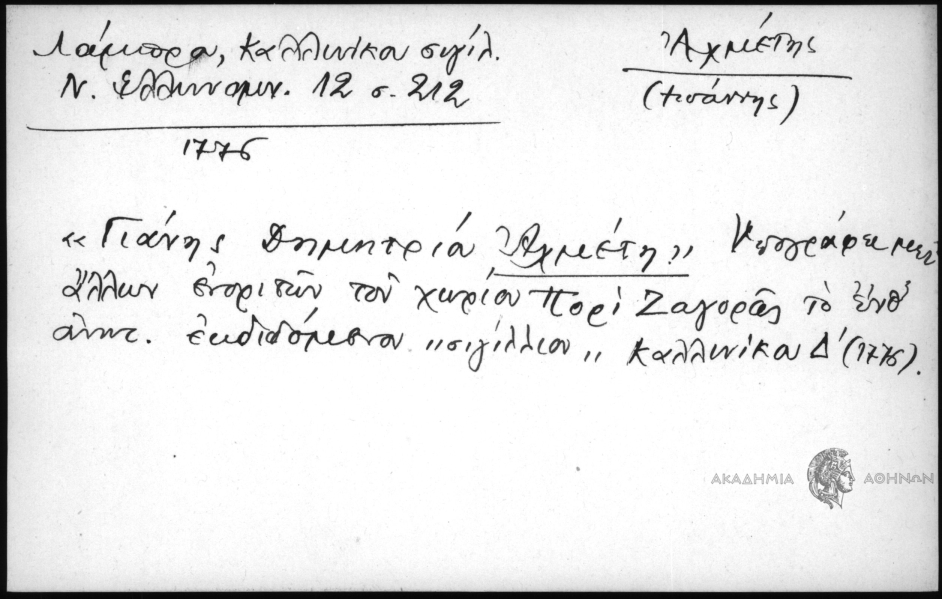 Λάμπρα, Καλλινίκου σιγίλ.
Ν. Ελληνομν. 12 σ. 212
1776
Ἀχμέτης
(Ἰωάννης)
« Γιάνης Δημητρίου Ἀχμέτη » Ὑπογράφει μετ'
ἄλλων ἐνοριτῶν τοῦ χωρίου Πορὶ Ζαγορᾶς τὸ ἐνθ'
ἀνωτ. ἐκδιδόμενον "σιγίλλιον" Καλλινίκου Δ' (1776).
ΑΚΑΔΗΜΙΑ ΑΘΗΝΩΝ